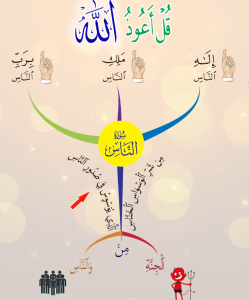 قُلْ أَعُوذُ اللَّه
بِرَبِّ النَّاسِ
مَلِكِ النَّاسِ
إِلَٰهِ النَّاسِ
سُورَةُ
النَّاسِ
مِن شَرِّ الْوَسْوَاسِ الْخَنَّاسِ
الَّذِي يُوَسْوِسُ فِي صُدُورِ النَّاسِ
مِنَ
الْجِنَّةِ
وَالنَّاسِ